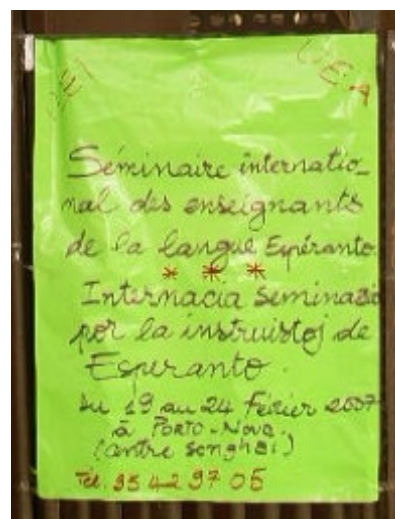 UEA
Séminaire internatio_
nal des enseignants
de la langue Espéranto.
* * *
Internacia seminario
por la instruistoj de
Esperanto.
Du 19 au 24 Février 2007
à Porto-Novo
(Centre Songhaï)
Tél. 95 42 97 05